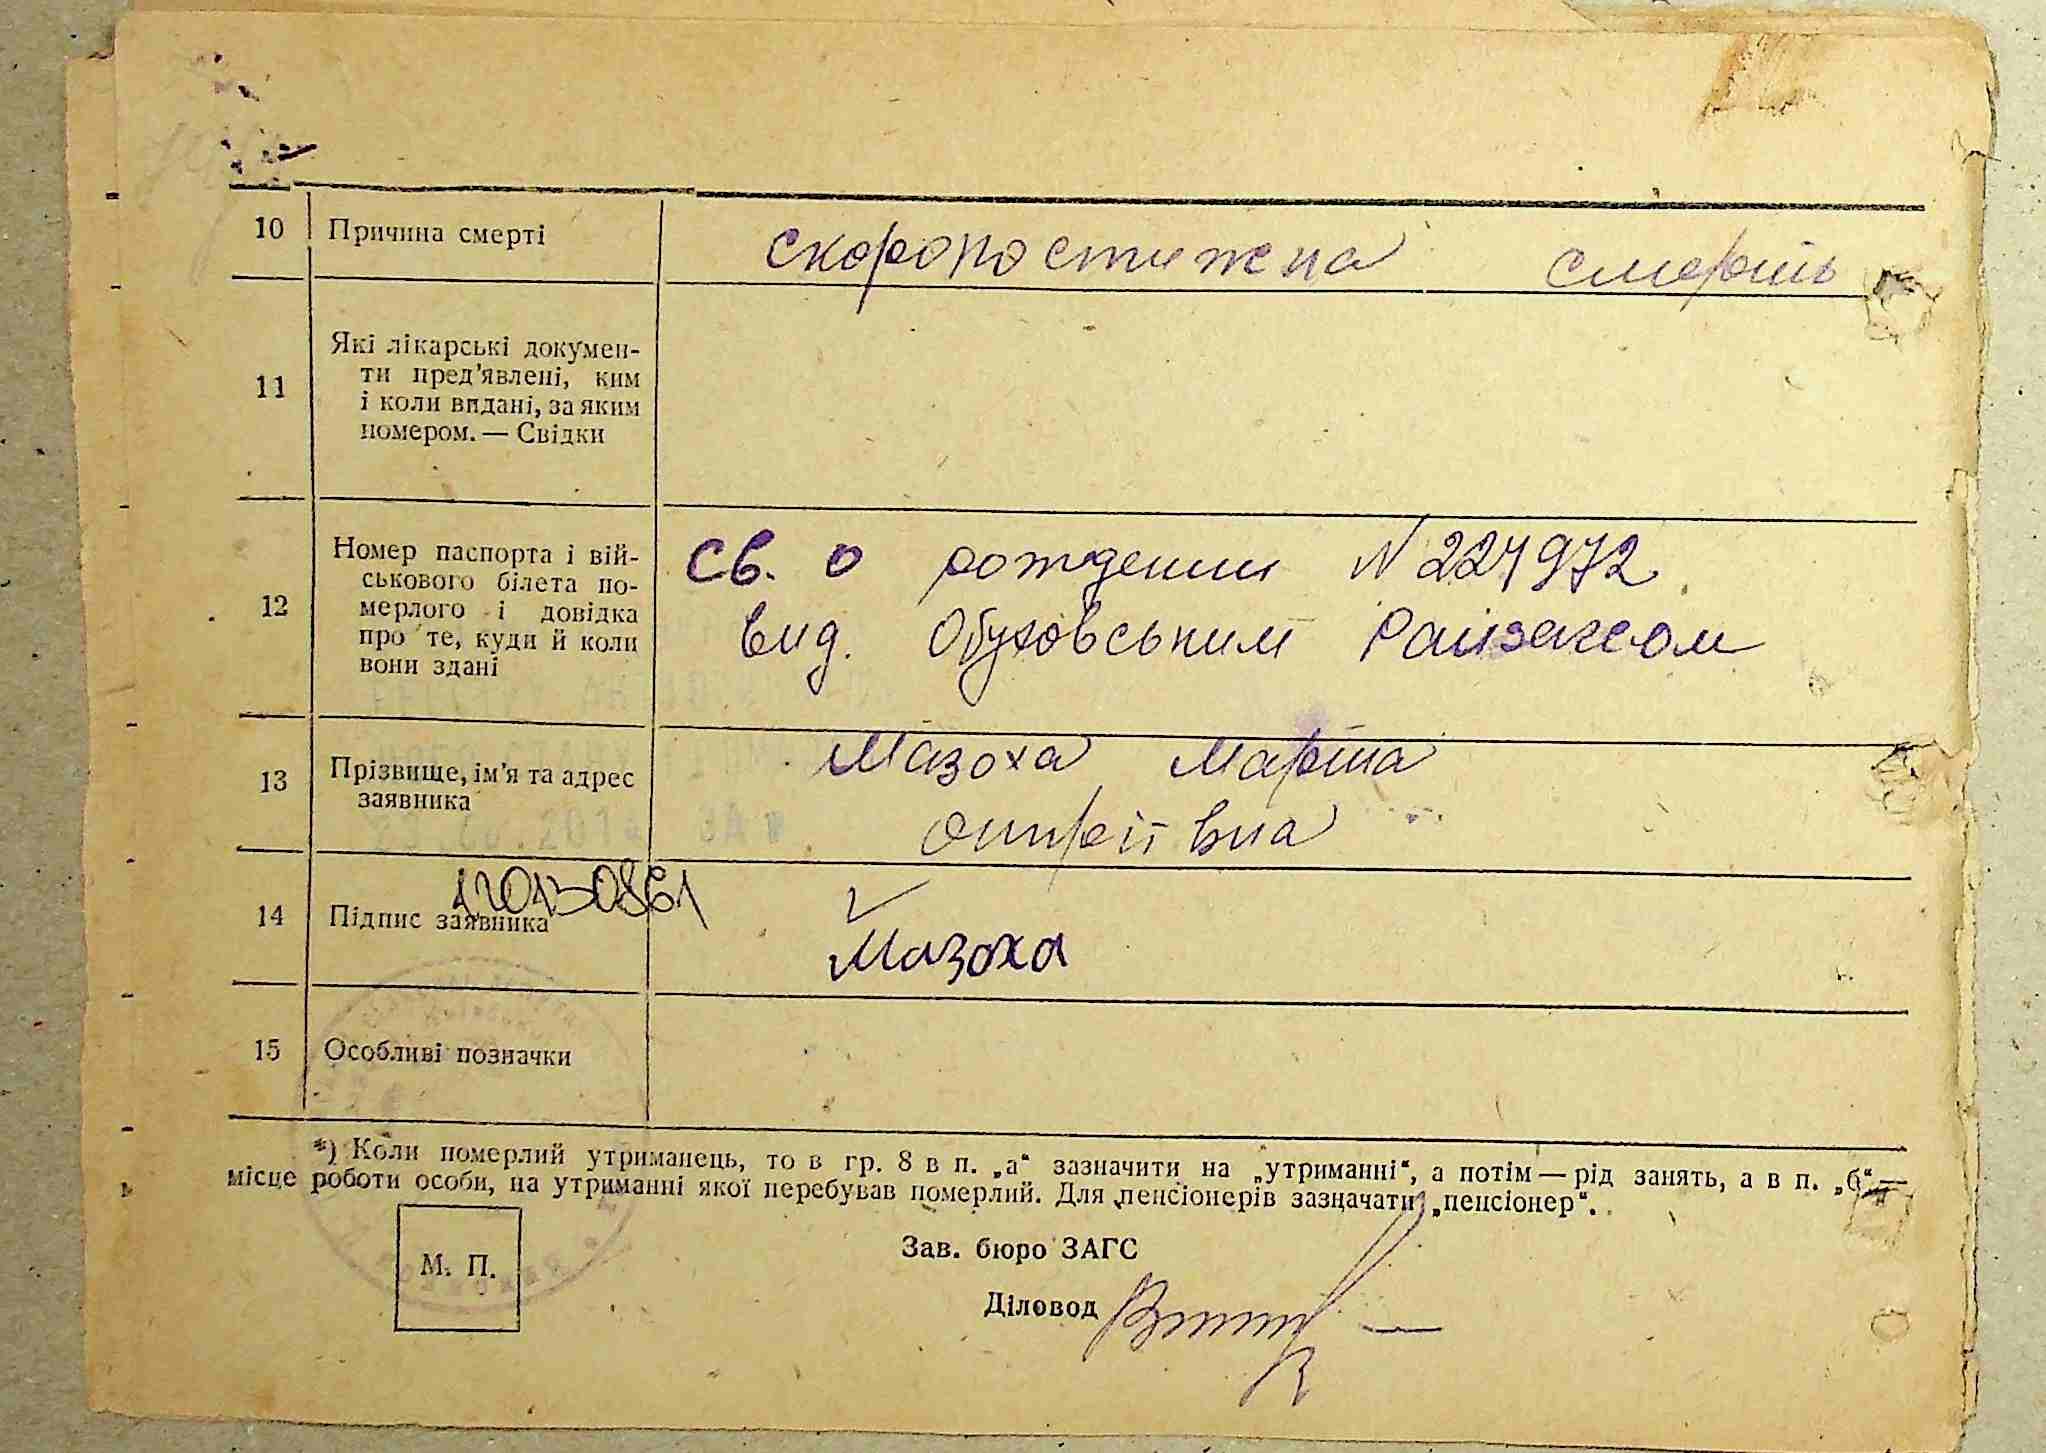 10 Причина смерті скоропостижна смерть
11 Які лікарські докумен-
ти пред'явлені, ким
і коли видані, за яким
номером. — Свідки
12 Номер паспорта і вій-
ськового білета по-
мерлого і довідка
про те, куди й коли
вони здані
св. о рождении N 227972
вид. Обуховським Райзагсом
13 Прізвище, ім'я та адрес
заявника
Мазоха Марта
Онуфріївна
14 Підпис заявника
Мазоха
15 Особливі позначки
*) Коли померлий утриманець, то в гр. 8 в п. „а“ зазначити на „утриманні“, а потім — рід занять, а в п. „б“ —
місце роботи особи, на утриманні якої перебував померлий. Для пенсіонерів зазначати „пенсіонер“.
М. П.
Зав. бюро ЗАГС
Діловод